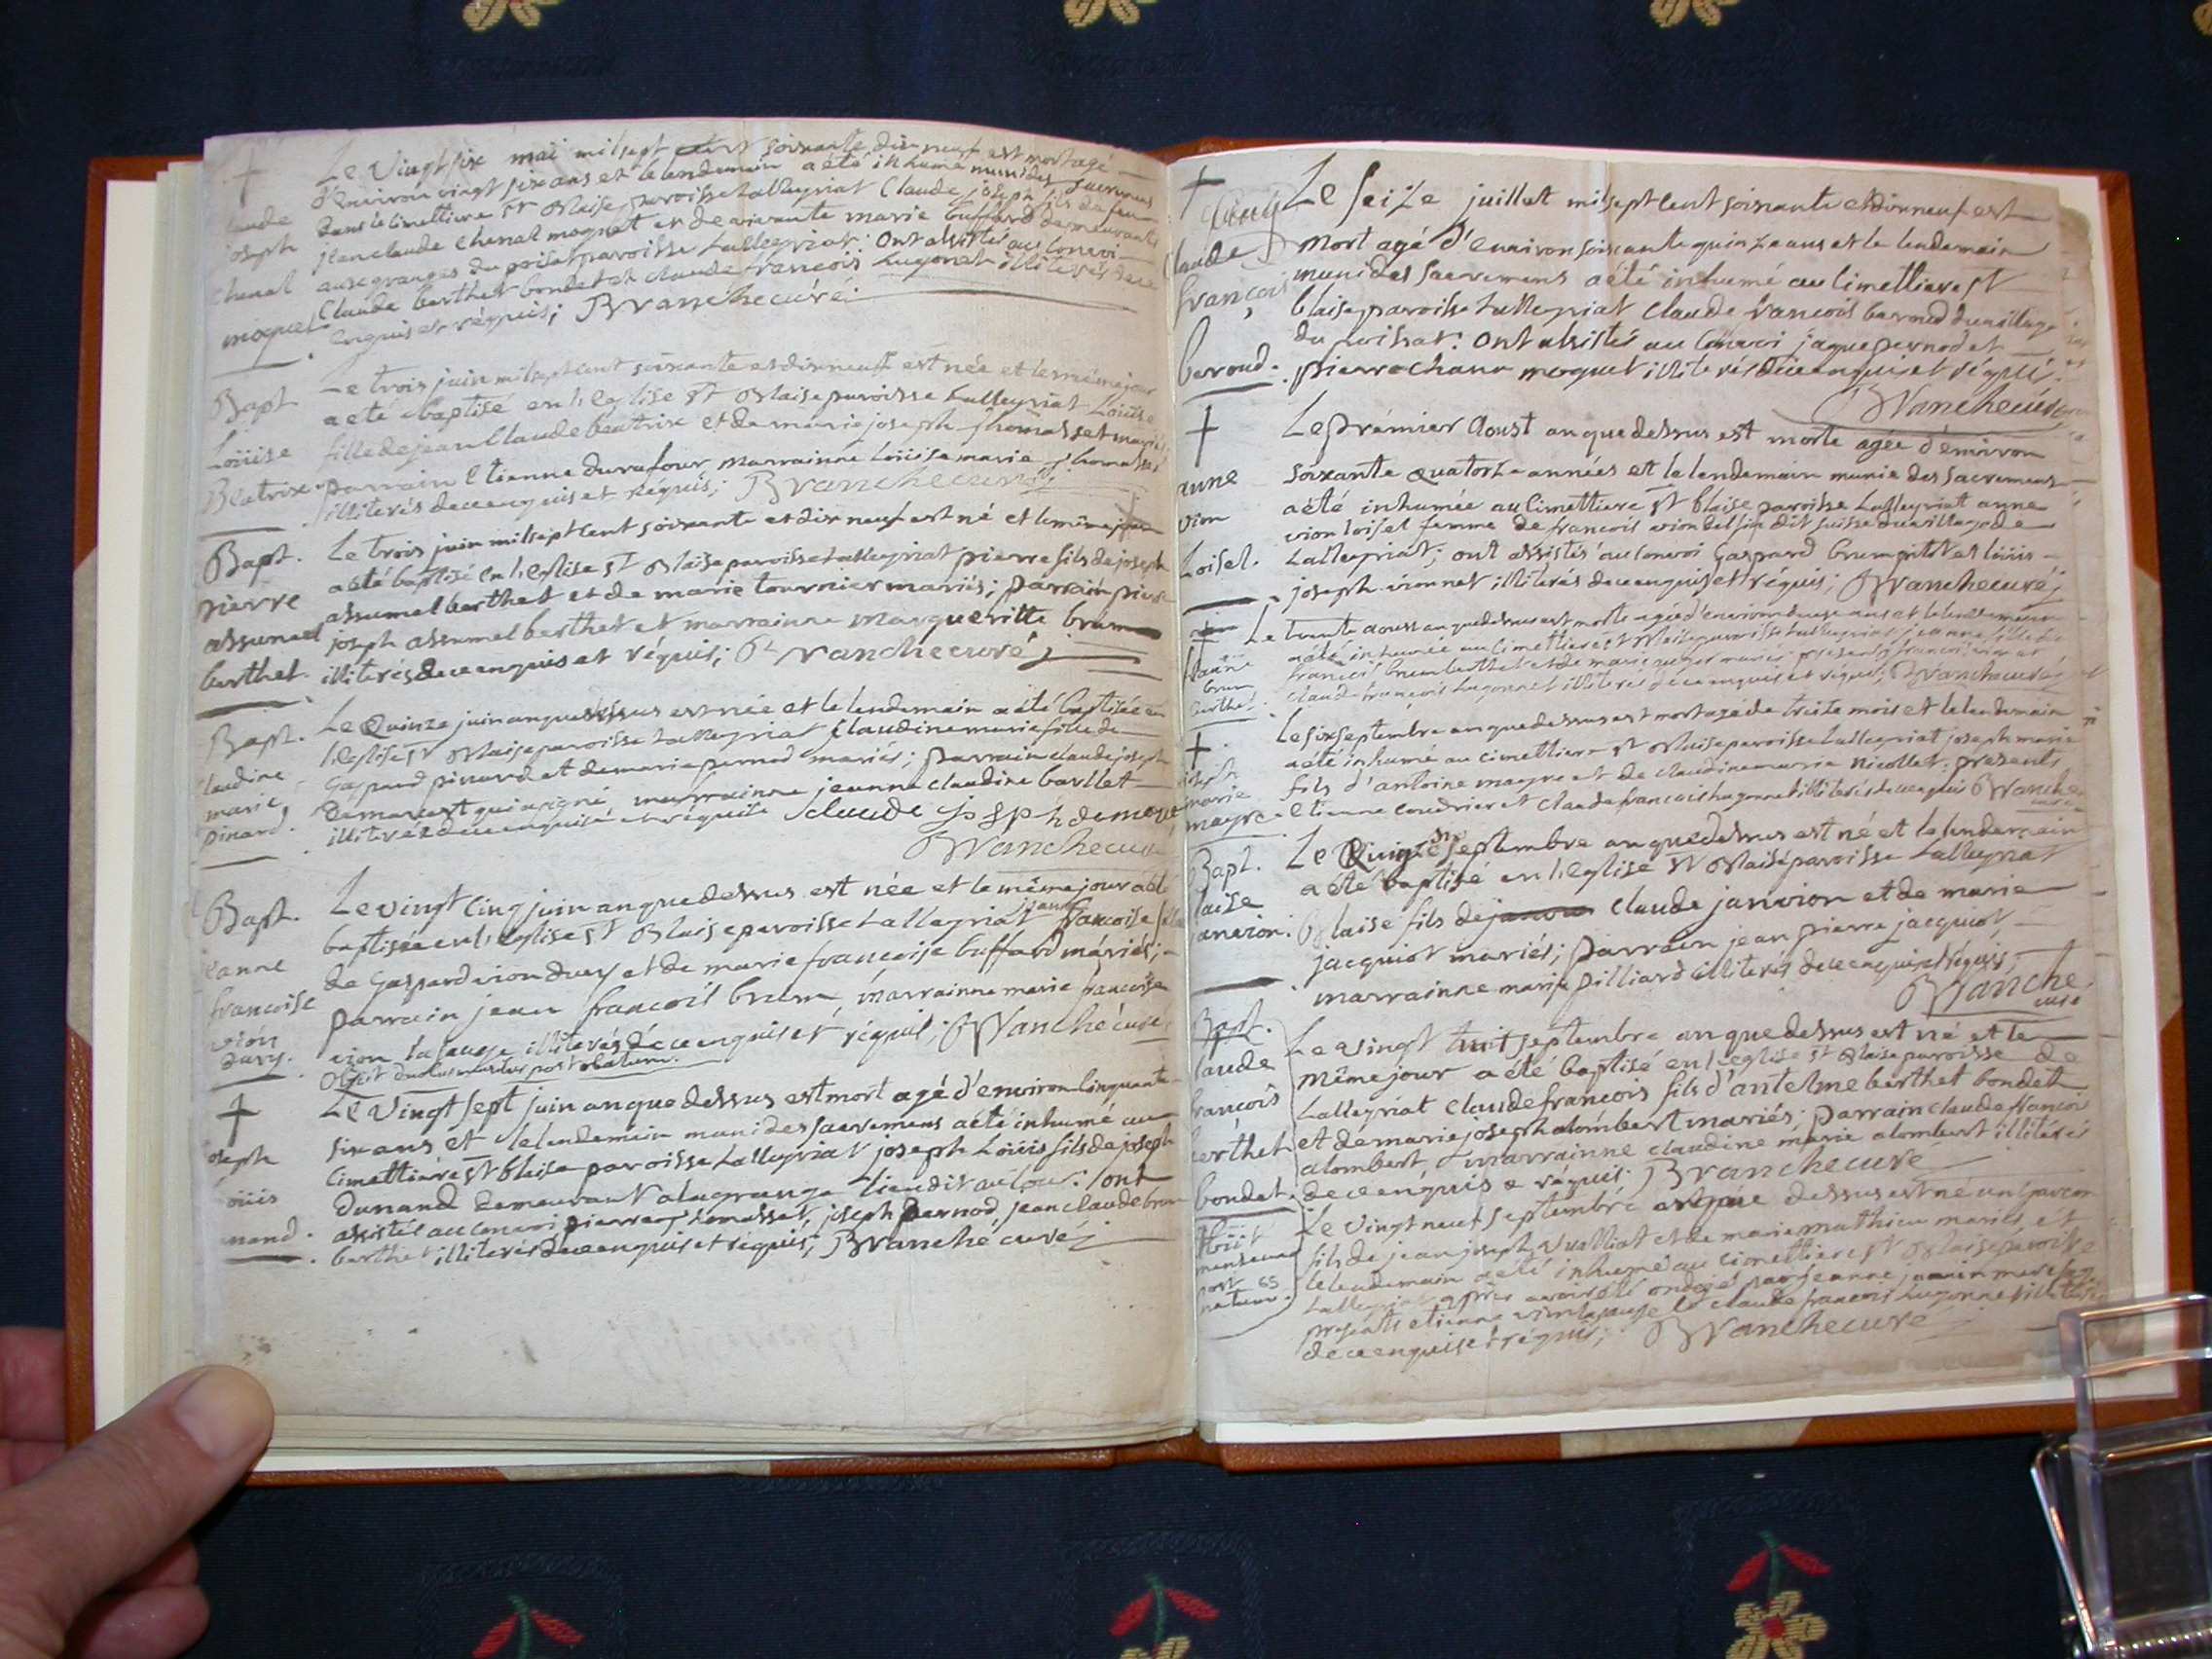 Le vingt six mai mil sept cent soixante dix neuf est mort agé
d'environ vingt six ans et le lendemain a été inhumé muni des sacremens
dans le cimettiere st Blaise paroisse Lalleyriat Claude joseph fils de feu
jean claude chenal moquet et de vivante marie buffard demeurants
aux granges du poisat paroisse Lalleyriat: ont assistés au convoi
Claude berthet bondet et claude francois hugonet illiterés de ce
enquis et réquis; Vanche curé
joseph
chenal
moquet
Bapt
Loüise
Beatrix
Le trois juin mil sept cent soixante et dix neuf est née et le même jour
a eté baptisé en l'eglise st Blaise paroisse Lalleyriat Loüise
fille de jean Claude béatrix et de marie joseph thomasset mariés
parrain Etienne durafour marrainne Loüise marie thomasset
illiterés de ce enquis et réquis; Vanche curé
Bapt.
pierre
assumel
berthet.
Le trois juin mil sept cent soixante et dix neuf est né et le même jour
a été baptisé en l'eglise st Blaise paroisse Lalleyriat pierre fils de joseph
assumel berthet et de marie tournier mariés; parrain pierre
joseph assumel berthet et marrainne marqueritte brum
illiterés de ce enquis et réquis; Vanche curé;
Bapt.
claudine
marie
pinard.
Le Quinze juin an que dessus est née et le lendemain a été baptisée en
l'eglise st Blaise paroisse Lalleyriat Claudine marie fille de
Gaspard pinard et de marie pernod mariés; parrain claude joseph
demarest qui a signé, marrainne jeanne claudine barllet
illiterez de ce enquise et réquise claude joseph
Vanche curé
Bapt.
jeanne
francoise
vion
dury.
Le vingt cinq juin an que dessus est née et le même jour a été
baptisée en l'eglise st Blaise paroisse Lalleyriat jeanne francoise fille
de Gaspard vion dury et de marie francoise buffard mariés;
parrain jean francois brum, marrainne marie francoise
vion lasauge illiterés de ce enquis et réquis; Vanche curé
Le vingt sept juin an que dessus est mort agé d'environ cinquante
six ans et le lendemain muni des sacremens a été inhumé au
cimettiere st blaise paroisse Lalleyriat joseph Loüis fils de joseph
Dunand demeurant a la grange lieu dit au : ont
assistés au convoi pierre thomasset, joseph pernod, jean claude brum
berthet illiterés de ce enquis et réquis; Vanché curé;
Le seize juillet mil sept cent soixante et dix neuf est
mort agé d'environ soixante quinze ans et le lendemain
muni des sacremens a été inhumé au cimettiere st
blaise paroisse Lalleyriat Claude francois beroud du village
du poisat: ont assistés au convoi jaque pernod et
pierre chana moquet illiterés de ce enquis et réquis.
Vanche curé
francois
beroud.
Le prémier aoust an que dessus est morte agée d'environ
soixante quatorze années et le lendemain munie des sacremens
a été inhumée au cimettiere st blaise paroisse Lalleyriat anne
vion loisel femme de francois vion dit suisse du village de
Lalleyriat; ont assistés au convoi Gaspard brum et loüis
joseph vionnet illiterés de ce enquis et réquis; Vanche curé;
anne
vion
Loisel.
Le trente aoust an que dessus est morte agée d'environ deux ans et le lendemain
a été inhumée au cimettiere st Blaise paroisse Lalleyriat jeanne fille de
francois brum berthet et de marie mariés; présents francois vion et
claude francois hugonnet illiterés de ce enquis et réquis; Vanche curé
Le six septembre an que dessus est mort agé de treize mois et le lendemain
a été inhumé au cimettiere st Blaise paroisse Lalleyriat joseph marie
fils d'antoine mayre et de claudine marie nicollet: présents
Etienne coudrier et claude francois hugonnet illiterés de ce enquis Vanche
curé
joseph
marie
mayre
Bapt.
blaise
janvion.
Le Quinze septembre an que dessus est né et le lendemain
a été baptisé en l'eglise st Blaise paroisse Lalleyriat
Blaise fils de Claude janvion et de marie
jacquiot mariés; parrain jean pierre jacquiot,
marrainne marie pilliard illiterés de ce enquis et réquis;
Vanche
curé
Bapt.
claude
francois
berthet
bondet.
Le vingt huit septembre an que dessus est né et le
même jour a été baptisé en l'eglise st Blaise paroisse de
Lalleyriat Claude francois fils d'antelme berthet bondet
et de marie joseph alombert mariés; parrain claude francois
alombert, marrainne claudine marie alombert illiterés
de ce enquis et réquis; Vanche curé
Le vingt neuf septembre an que dessus est né un garcon
fils de jean joseph vualliat et de marie mathieu mariés, et
le lendemain a été inhumé au cimettiere st Blaise paroisse
Lalleyriat après avoir été ondoyé par jeanne janin mere sage
présents etienne vion lasauge et claude francois hugonnet illiterés
de ce enquis et réquis; Vanche curé